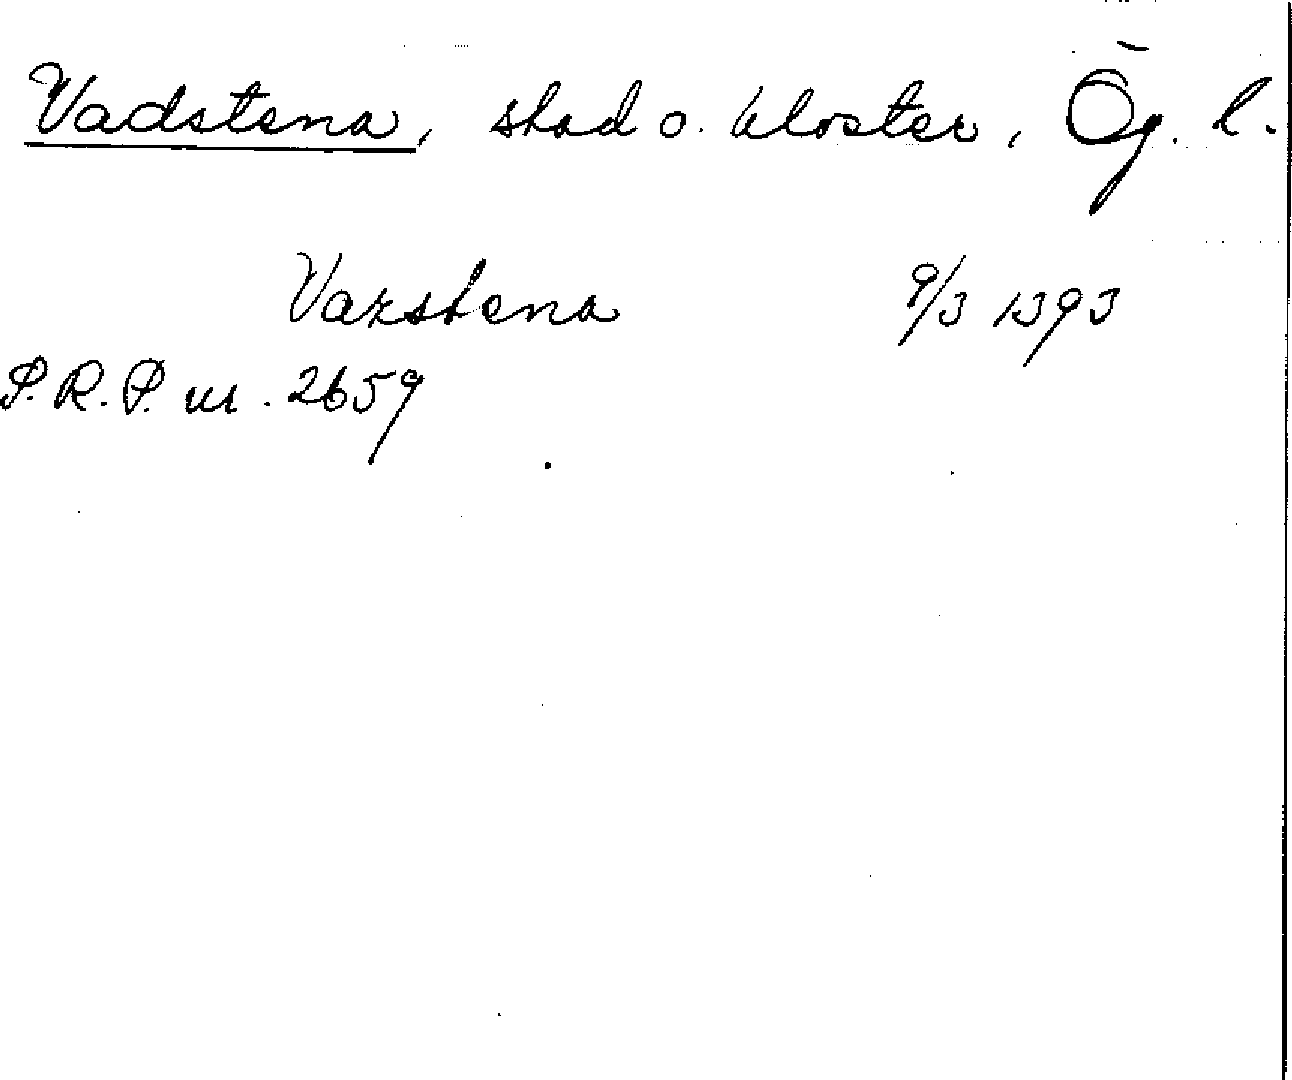 Vadstena, stad o. kloster, Ög. l.
Vazstena 9/3 1393
P.R.P. nr. 2659